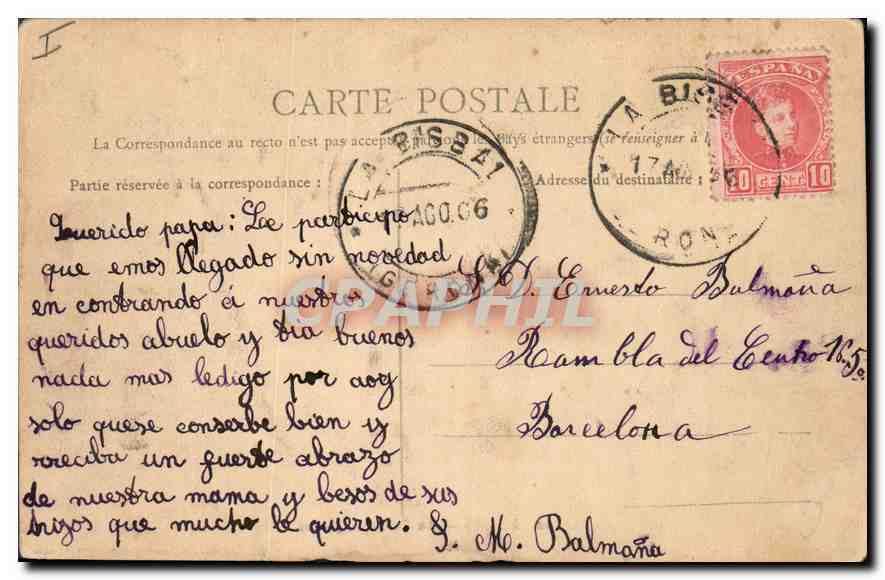 I
CARTE POSTALE
La Correspondance au recto n'est pas accep par les Pays étrangers (se renseigner à la
Partie réservée à la correspondance :
Adresse du destinataire :
ESPAÑA
10 CENT. 10
LA BISBAL
AGO.06
GERONA
LA BISB
17 AG
RON
CPAPHIL
Querido papa: Le participo
que emos llegado sin novedad
en contrando á nuestros
queridos abuelo y tia buenos
nada mas ledigo por aog
solo quese conserbe bien y
rreciba un fuerte abrazo
de nuestra mama y besos de sus
hijos que mucho le quieren.
S. M. Balmaña
S. D. Ernesto Balmaña
Rambla del Centro 16-5º
Barcelona